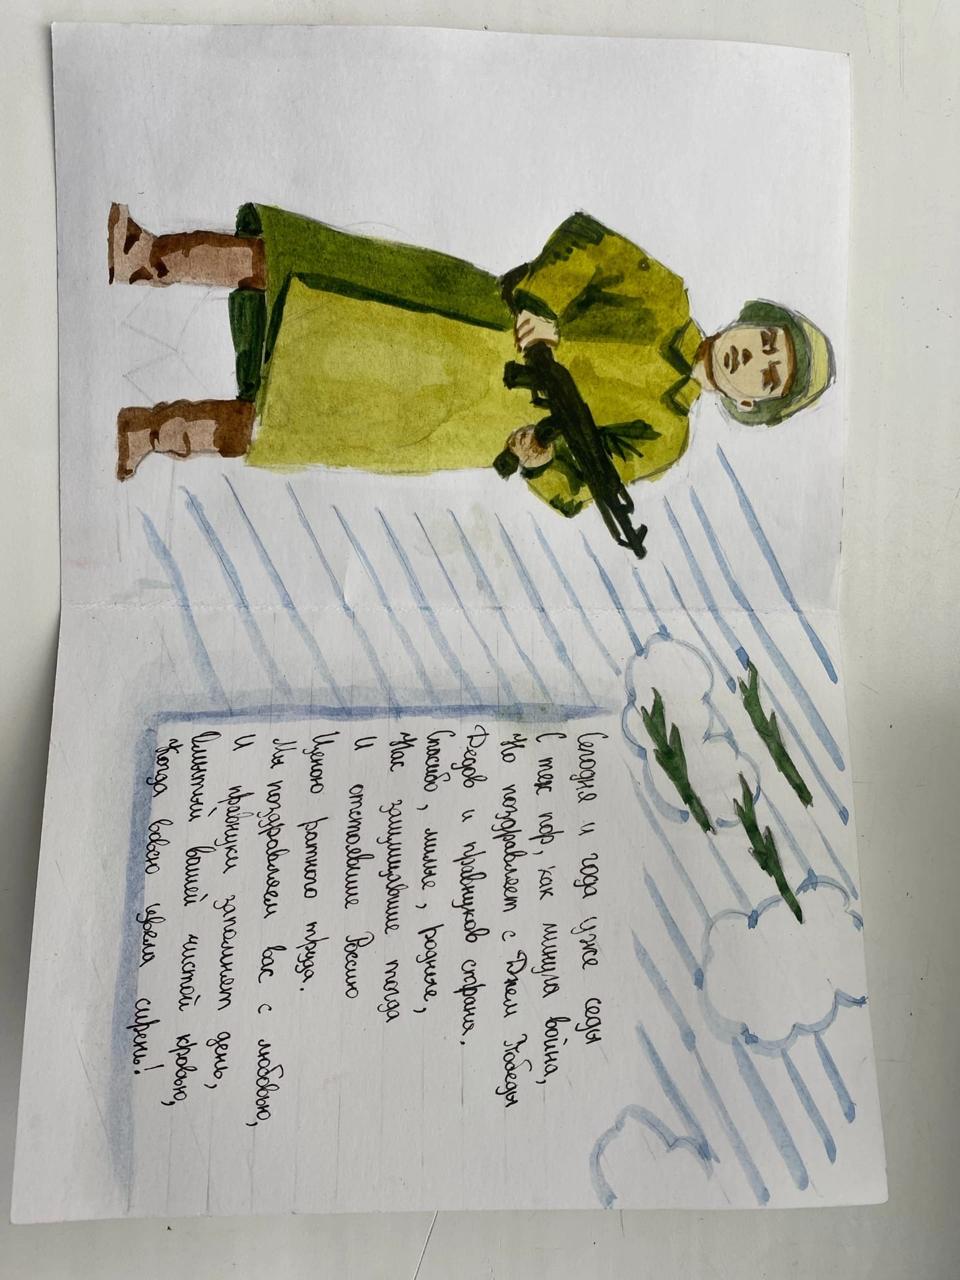 Сегодня и года уже седы
С тех пор, как минула война,
Но поздравляет с Днем Победы
Дедов и правнуков страна.
Спасибо, милые, родные,
Нас защищавшие тогда
И отстоявшие Россию
Ценою ратного труда.
Мы поздравляем вас с любовью,
И правнуки запомнят день,
Влитый вашей чистой кровью,
Когда вовсю цвела сирень!